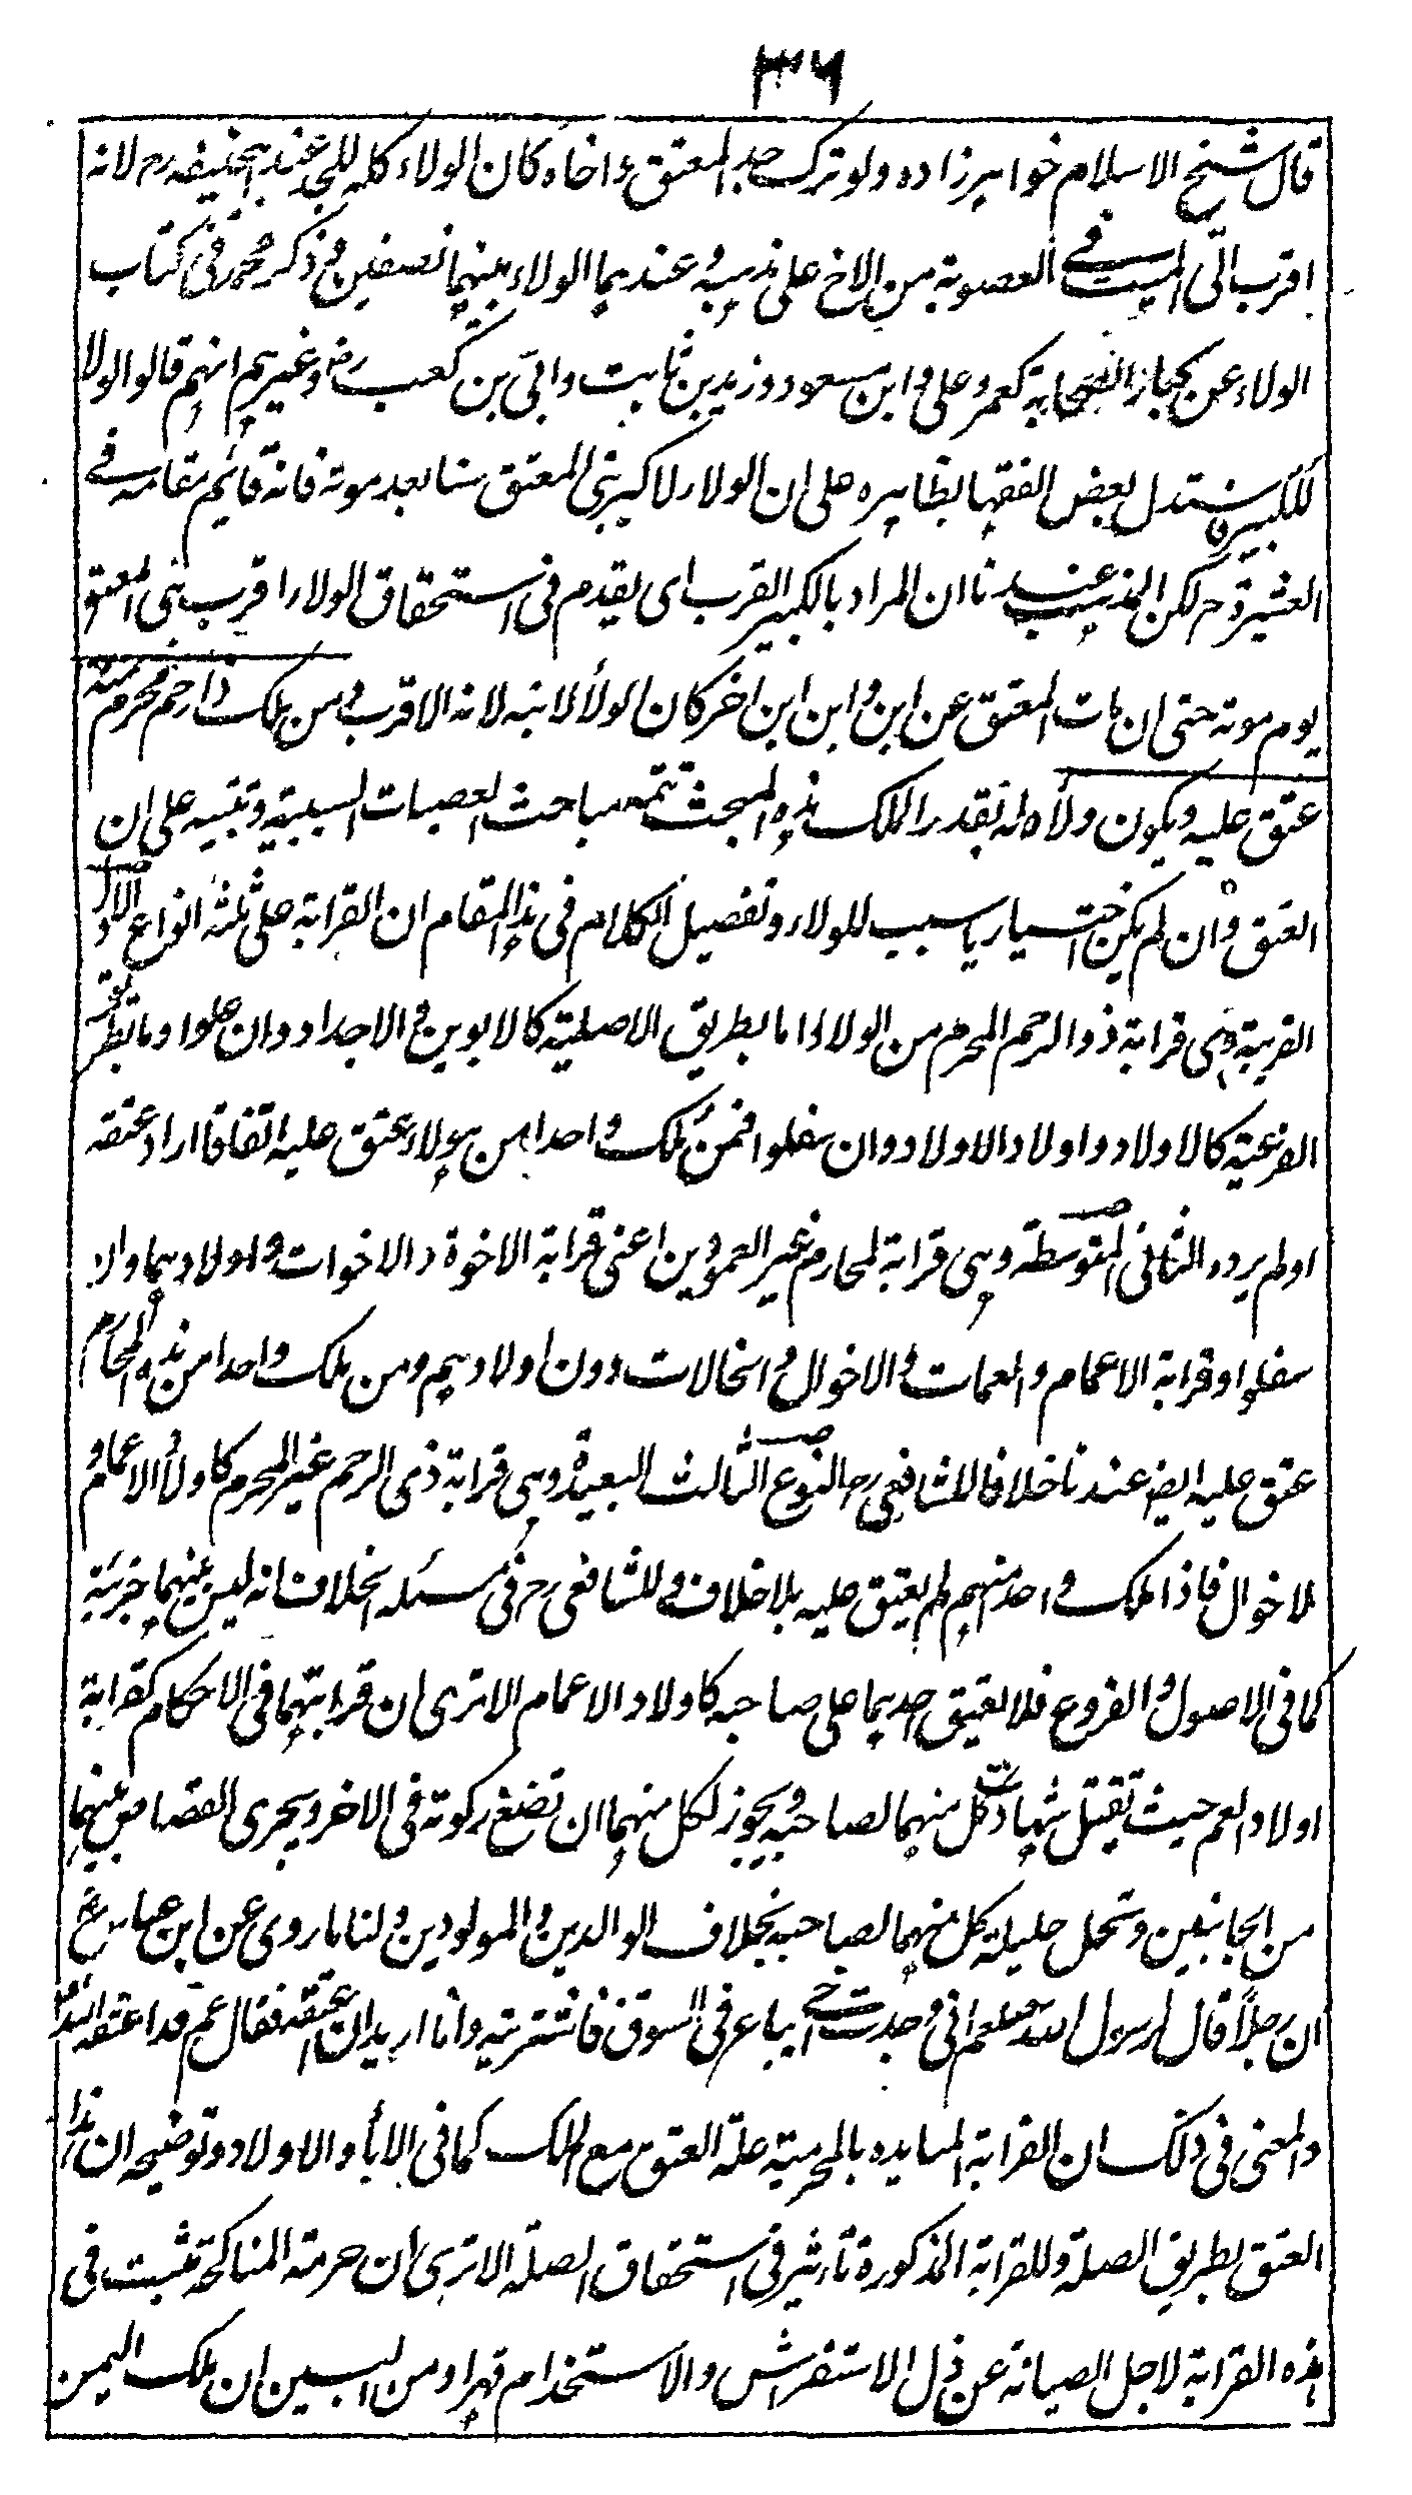 ٣٦
قال شيخ الاسلام خواهر زاده ولو ترك جد المعتق واخاه كان الولاء كله للجد عند ابيحنيفه رح لانه
اقرب الى الميت فى العصوبة من الاخ على مذهبه وعندهما الولاء بينهما نصفين وذكر محمد فى كتاب
الولاء عن كبار الصحابة كعمر وعلى وابن مسعود وزيد بن ثابت وابى بن كعب رض وغيرهم انهم قالوا الولا
للكبير استدل بعض الفقها بظاهره على ان الولاء لاكبر بنى المعتق سنا بعد موته فانه قائم مقامه فى
العشيرة لكن المذهب عندنا ان المراد بالكبير القرب اى يقدم فى استحقاق الولاء اقرب بنى المعتق
يوم موته حتى ان مات المعتق عن ابن وابن ابن اخر كان الولأ لابنه لانه الاقرب ومن ملك ذا رحم محرم منه
عتق عليه ويكون ولاه له بقدر الملك هذه المبحث تتمه مباحث العصبات السببية وتنبيه على ان
العتق وان لم يكن اختياريا سبب للولاء وتفصيل الكلام فى هذا المقام ان القرابة على ثلثة انواع الاول
القريبة وهى قرابة ذو الرحم المحرم من الولاد اما بطريق الاصلية كالابوين والاجداد وان علوا وما بطريق
الفرعية كالاولاد واولاد الاولاد وان سفلوا فمن ملك واحدا من هولاء عتق عليه اتفاقا اراد عتقه
اولم يرده الثانى المتوسطة وهى قرابة المحارم غير العمودين اعنى قرابة الاخوة والاخوات واولادهما وان
سفلوا وقرابة الاعمام والعمات والاخوال والخالات دون اولادهم ومن ملك واحدا من هذه المحارم
عتق عليه ايض عندنا خلافا للشافعى رح النوع الثالث البعيدة وهى قرابة ذى الرحم غير المحرم كاولأد الاعمام و
لاخوال فاذا ملك واحد منهم لم يعتق عليه بلاخلاف وللشافعى رح فى مسئله الخلاف انه ليس بينهما جزئية
كما فى الاصول والفروع فلا يعتق احدهما على صاحبه كاولاد الاعمام الا ترى ان قرابتهما فى الاحكام كقرابة
اولاد العم حيث تقبل شهادت كل منهما لصاحبه ويجوز لكل منهما ان تضع زكوته فى الاخر ويجرى القصاص بينهما
من الجانبين وتحل حليلة كل منهما لصاحبه بخلاف الوالدين والمولودين ولنا ما روى عن ابن عباس رض
ان رجلاً قال لرسول الله صلعم انى وجدت اخى يباع فى السوق فاشتريته وانا اريد ان اعتقه فقال عم قد اعتقه الله
والمعنى فى ذلك ان القرابة المتايده بالمحرمية علة العتق مع الملك كما فى الابأ والاولاد وتوضيحه ان هذا
العتق بطريق الصلة وللقرابة المذكورة تأثير فى استحقاق الصلة الا ترى ان حرمة المناكحة تثبت فى
هذه القرابة لاجل الصيانة عن ذل الاستفراش والاستخدام قهرا ومن البين ان ملك اليمن